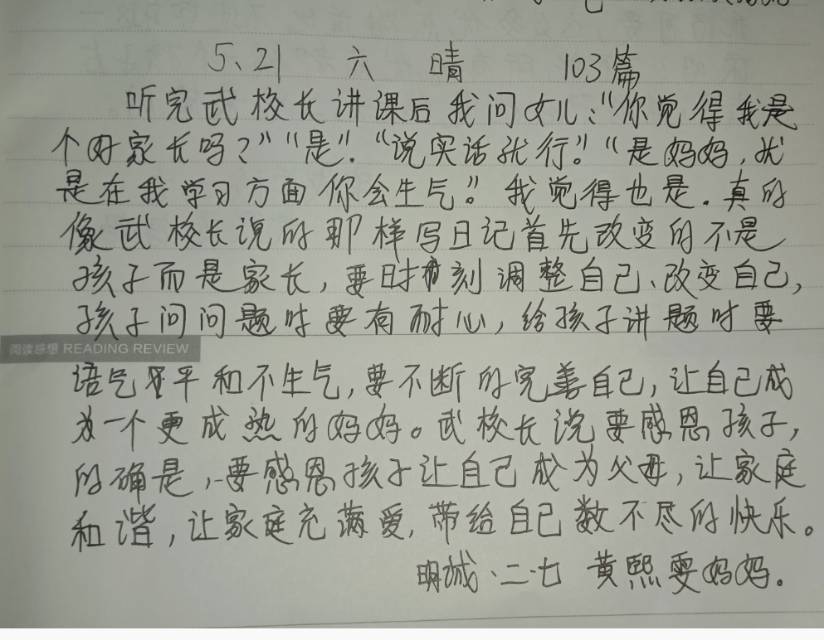 5、21 六 晴 103篇
听完武校长讲课后我问女儿："你觉得我是
个好家长吗？""是"."说实话就行。""是妈妈，就
是在我学习方面你会生气。"我觉得也是．真的
像武校长说的那样写日记首先改变的不是
孩子而是家长，要时刻调整自己、改变自己，
孩子问问题时要有耐心，给孩子讲题时要
阅读感想 READING REVIEW
语气平和不生气，要不断的完善自己，让自己成
为一个更成熟的妈妈。武校长说要感恩孩子，
的确是，要感恩孩子让自己成为父母，让家庭
和谐，让家庭充满爱，带给自己数不尽的快乐。
明城·二·七 黄熙雯妈妈．